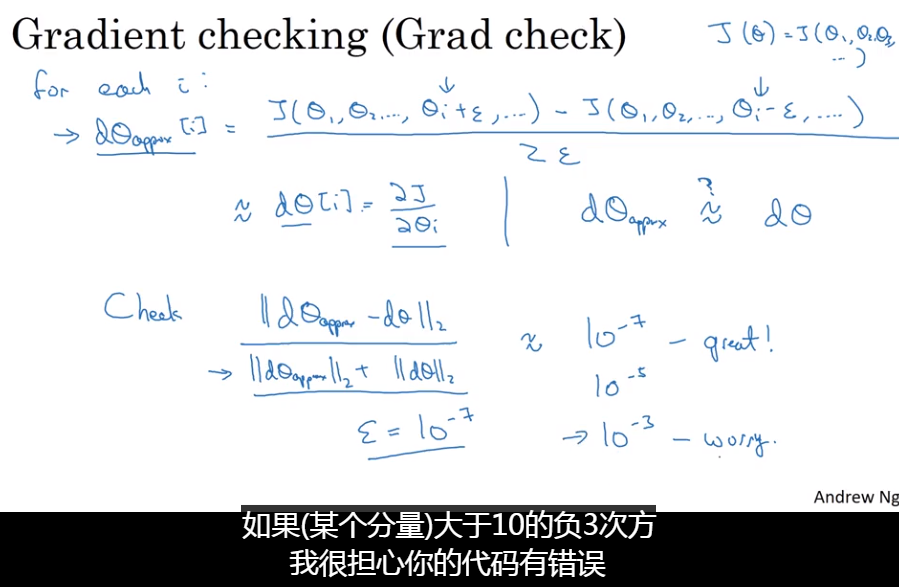 Gradient checking (Grad check)
J(θ) = J(θ₁, θ₂, θ₃, ...)
for each i:
→ dθapprox[i] = J(θ₁, θ₂, ..., θᵢ+ε, ...) - J(θ₁, θ₂, ..., θᵢ-ε, ....) / 2ε
≈ dθ[i] = ∂J/∂θᵢ | dθapprox ≈? dθ
Check ||dθapprox - dθ||₂ / ||dθapprox||₂ + ||dθ||₂ ≈ 10⁻⁷ - great!
10⁻⁵
ε = 10⁻⁷ → 10⁻³ - worry.
Andrew Ng
如果(某个分量)大于10的负3次方
我很担心你的代码有错误